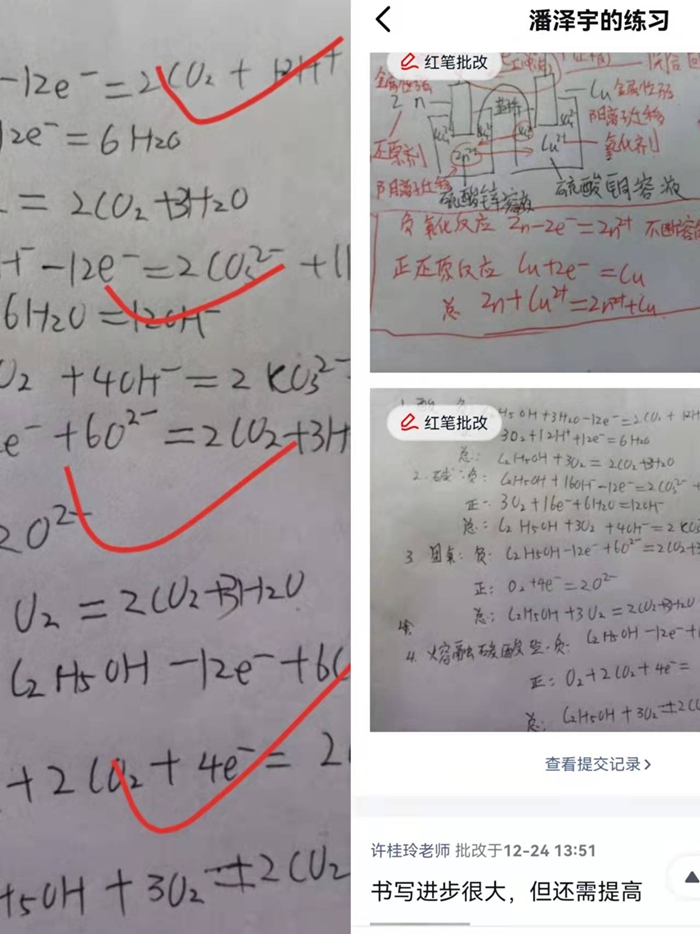 -12e⁻=2CO₂+12H⁺
12e⁻=6H₂O
=2CO₂+3H₂O
-12e⁻=2CO₃²⁻+11
6H₂O=12OH⁻
O₂+4OH⁻=2KO₃²⁻
e⁻+6O²⁻=2CO₂+3H
2O²⁻
O₂=2CO₂+3H₂O
C₂H₅OH-12e⁻+6O
+2CO₂+4e⁻=2
H₅OH+3O₂=2CO₂
潘泽宇的练习
红笔批改
Zn
Cu 金属性弱
阴离子迁移
还原剂
Zn²⁺
Cu²⁺
氧化剂
硫酸锌溶液
硫酸铜溶液
负氧化反应 Zn-2e⁻=Zn²⁺ 不断溶
正还原反应 Cu+2e⁻=Cu
总 Zn+Cu²⁺=Zn²⁺+Cu
红笔批改
H₅OH+3H₂O-12e⁻=2CO₂+12H
3O₂+12H⁺+12e⁻=6H₂O
总:C₂H₅OH+3O₂=2CO₂+3H₂O
2.碱:负:C₂H₅OH+16OH⁻-12e⁻=2CO₃²⁻+
正:3O₂+16e⁻+6H₂O=12OH⁻
总:C₂H₅OH+3O₂+4OH⁻=2KO₃
3 固氧:负:C₂H₅OH-12e⁻+6O²⁻=2CO₂+3
正:O₂+4e⁻=2O²⁻
总:C₂H₅OH+3O₂=2CO₂+3H₂O
4.熔融碳酸盐.负:C₂H₅OH-12e⁻+
正:O₂+2CO₂+4e⁻=
总:C₂H₅OH+3O₂=2CO
查看提交记录>
许桂玲老师 批改于12-24 13:51
书写进步很大，但还需提高